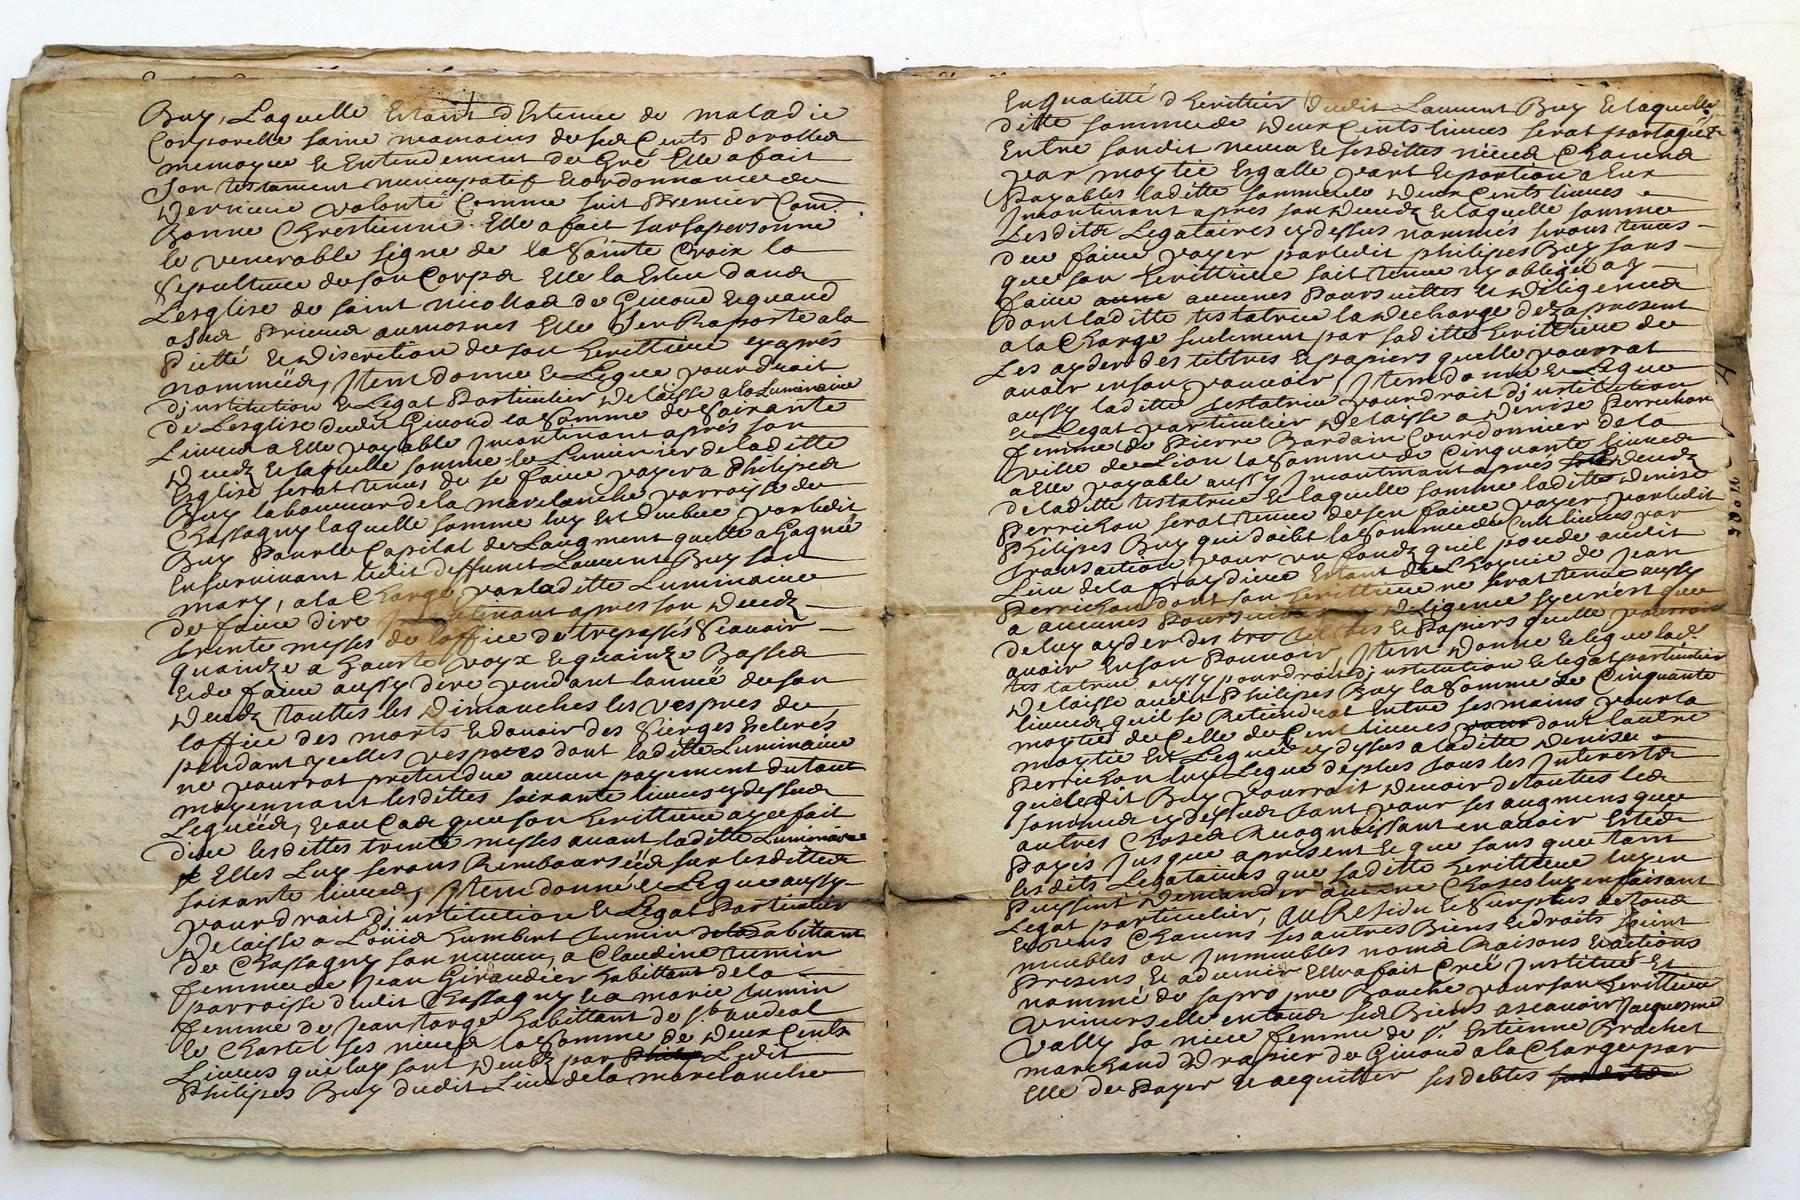 Buy, Laquelle Estant d'Estenue de maladie
Corporelle saine neamoins de ses Cents Parolles
memoyre et Entendement de Gré Elle a fait
son testament nuncupatif et ordonnance de
derniere volonté Comme suit Premier Com̃
Bonne Chrestienne Elle a fait sur sa personne
le venerable signe de la Sainte Croix la
sepulture de son Corps Elle la Esleu dans
Lesglise de saint Nicollas de Givord et quand
a ses Prieres aumosnes Elle s'en Rapporte a la
Pietté et discretion de son heritiere cy aprés
nommées, Item donne et Legue pour droit
d'jnstitution et Legat Particulier delaisse a la Luminaire
de Lesglise dudit Givord la Somme de Soixante
Livres a Elle payable jncontinant aprés son
decedz et laquelle somme le Luminier de laditte
Esglise serat tenus de se faire payer a Philipes
Buy laboureur de la marelanche parroisse de
Chassagny laquelle somme luy est deubue par ledit
Buy Pour le Capital de Laugment quelle a Gagné
En survivant ledit deffunt Laurent Buy son
mary, a la Charge par laditte Luminaire
de faire dire jncontinant apres son decedz
trente messes de l'office de trepassés Scavoir
quainze a haute voyx et quainze Basses
et de faire aussy dire pendant lannée de son
decedz touttes les dimanches les vespres de
loffice des morts et davoir des Cierges Esclerés
pendant ycelles vespres dont laditte Luminaire
ne pourrat pretendre aucun payement du tout
moyennant lesdittes soixante livres cy dessus
Leguéés, et au Cas que son heritiere aye fait
dire lesdittes trente messes avant laditte Luminaire
Elles Luy serons Rembourséés sur lesdittes
soixante livres, Item donne et Legue aussy
pour droit d'jnstitution et Legat Particulier
delaisse a Loüis humbert tumin habittant
de Chassagny son neveu, a Claudine tumin
femme de Jean Giraudier habittant de la
parroisse dudit Chassagny et a marie tumin
femme de Jean targe habittant de St andeol
le Chastel ses nieces la Somme de deux Cents
Livres qui luy sont deubz par Ledit
Philipes Buy dudit Lieu de la marelanche
En qualitté d'heritier dudit Laurent Buy et laquelle
ditte somme de deux Cents livres serat partagée
Entre sondit neveu et sesdittes nieces Chacuns
par moytie Esgalle part et portion a Eux
Payables laditte somme de deux Cents livres
jncontinant apres son decedz et laquelle somme
Lesdits Legataires cy dessus nommés serons tenus
de se faire payer par ledit philipes Buy sans
que son heritiere soit tenue ny obligée a y
faire aucunes Poursuittes et diligences
dont laditte testatrice la decharge deza present
a la Charge seulement par saditte heritiere de
Les ayder des tittres et papiers quelle pourrat
avoir en son pouvoir, Item donne et Legue
aussy laditte testatrice pour droit d'jnstitution
et Legat particulier delaisse a denise Perrichon
femme de Pierre Bardain Courdonnier de la
ville de Lion la Somme de Cinquante livres
a Elle payable aussy jncontinant aprés decedz
de laditte testatrice et laquelle somme laditte denise
Perrichon serat tenue de son faire payer par ledit
Philipes Buy qui doibt la Somme de Cent livres par
transaction pour un fondz quil possede audit
Lieu de la fraydiere Estant de L'hoyrie de Jean
Perrichon dont son heritiere ne serat tenue aussy
a aucunes Poursuittes et diligence sy n'est que
de luy ayder des tittres et Papiers quelle pourrat
avoir En son Pouvoir, Item donne et legue lad.
testatrice aussy pour droit d'jnstitution et legat particulier
delaisse audit Philipes Buy la Somme de Cinquante
livres quil se Retiendrat Entre ses mains pour la
moytie de Celle de Cent livres dont lautre
moytie Est Leguée cy dessus a laditte denise
Perrichon luy Legue deplus tous les Interests
que ledit Buy pourroit devoir de touttes les
sommes cy dessus tant pour ses augmens que
autres Choses Recognoissant en avoir Estée
Payés Jusque apresent et que sans que tant
lesdits Legataires que saditte heritiere luy en
Puyssent demander aucune Choses luy en faisant
Legat particulier, Au Residu et Surplus de tous
et uns Chacuns ses autres Biens et droits soient
meubles ou jmmeubles noms Raisons et actions
Presens et advenir Elle a fait Creé Institué Et
nommé de sa propre Bouche pour son heritiere
Universelle en tous ses Biens a scavoir Jacquesme
Vally sa niece femme de Sr. Estienne Brachet
marchand drapier de Givord a la Charge par
Elle de Payer et acquitter ses debtes